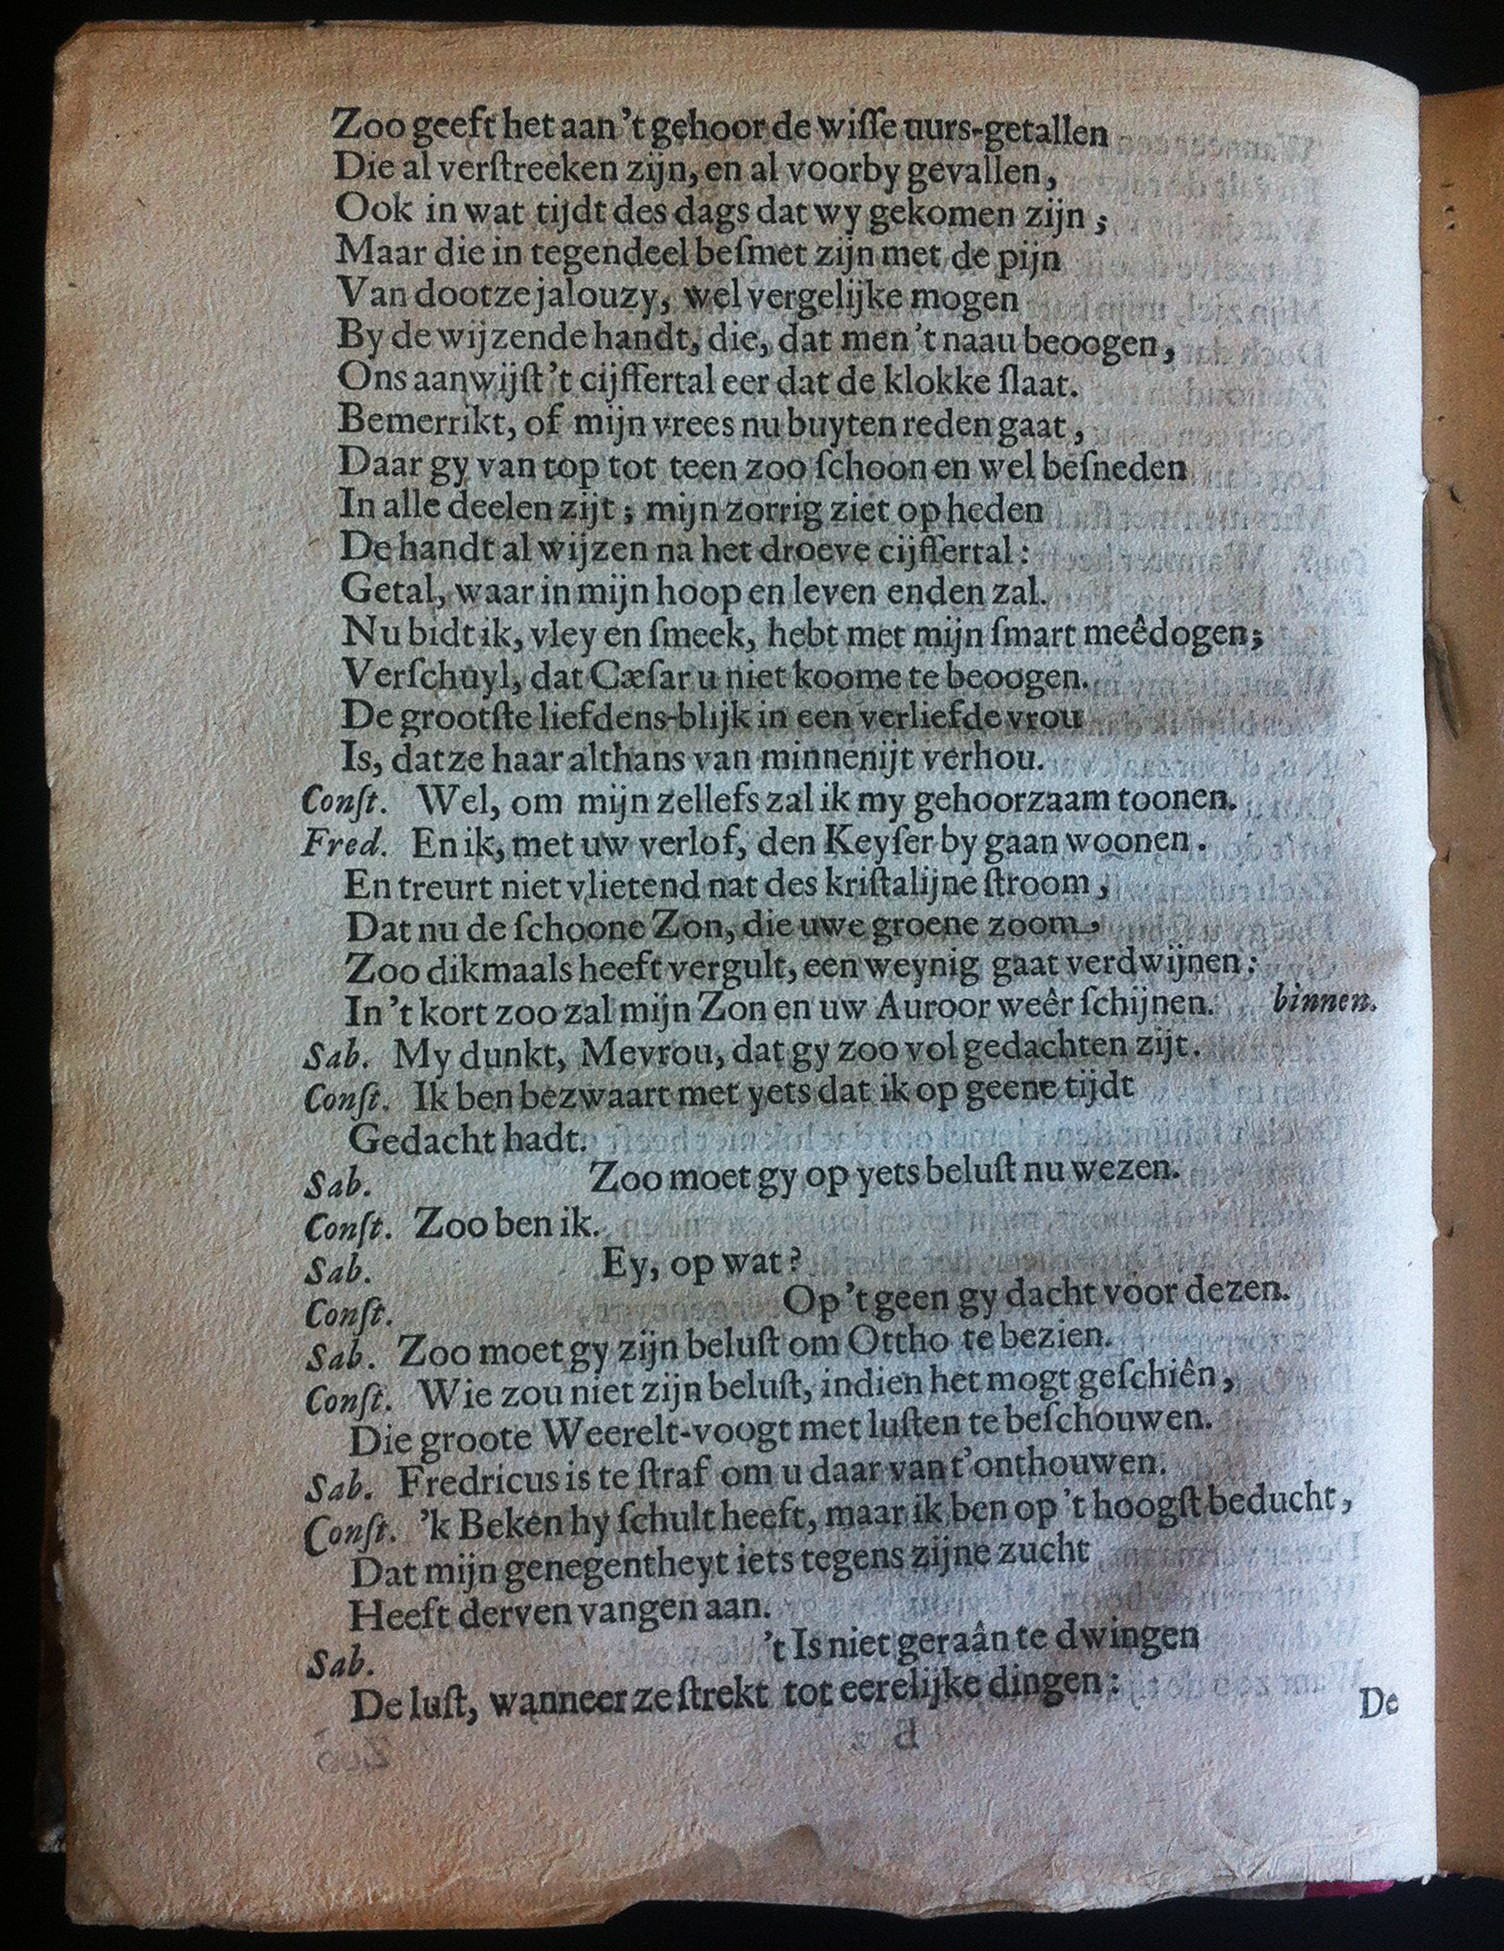 Zoo geeft het aan 't gehoor de wiſſe uurs-getallen
Die al verſtreeken zijn, en al voorby gevallen,
Ook in wat tijdt des dags dat wy gekomen zijn;
Maar die in tegendeel beſmet zijn met de pijn
Van dootze jalouzy, wel vergelijke mogen
By de wijzende handt, die, dat men 't naau beoogen,
Ons aanwijſt 't cijffertal eer dat de klokke ſlaat.
Bemerrikt, of mijn vrees nu buyten reden gaat,
Daar gy van top tot teen zoo ſchoon en wel beſneden
In alle deelen zijt; mijn zorrig ziet op heden
De handt al wijzen na het droeve cijffertal:
Getal, waar in mijn hoop en leven enden zal.
Nu bidt ik, vley en ſmeek, hebt met mijn ſmart meêdogen;
Verſchuyl, dat Cæſar u niet koome te beoogen.
De grootſte liefdens-blijk in een verliefde vrou
Is, datze haar althans van minnenijt verhou.
Conſt. Wel, om mijn zellefs zal ik my gehoorzaam toonen.
Fred. En ik, met uw verlof, den Keyſer by gaan woonen.
En treurt niet vlietend nat des kriſtalijne ſtroom,
Dat nu de ſchoone Zon, die uwe groene zoom,
Zoo dikmaals heeft vergult, een weynig gaat verdwijnen:
In 't kort zoo zal mijn Zon en uw Auroor weêr ſchijnen. binnen.
Sab. My dunkt, Mevrou, dat gy zoo vol gedachten zijt.
Conſt. Ik ben bezwaart met yets dat ik op geene tijdt
Gedacht hadt.
Sab. Zoo moet gy op yets beluſt nu wezen.
Conſt. Zoo ben ik.
Sab. Ey, op wat?
Conſt. Op 't geen gy dacht voor dezen.
Sab. Zoo moet gy zijn beluſt om Ottho te bezien.
Conſt. Wie zou niet zijn beluſt, indien het mogt geſchiên,
Die groote Weerelt-voogt met luſten te beſchouwen.
Sab. Fredricus is te ſtraf om u daar van t'onthouwen.
Conſt. 'k Beken hy ſchult heeft, maar ik ben op 't hoogſt beducht,
Dat mijn genegentheyt iets tegens zijne zucht
Heeft derven vangen aan.
Sab. 't Is niet geraân te dwingen
De luſt, wanneer ze ſtrekt tot eerelijke dingen:
De